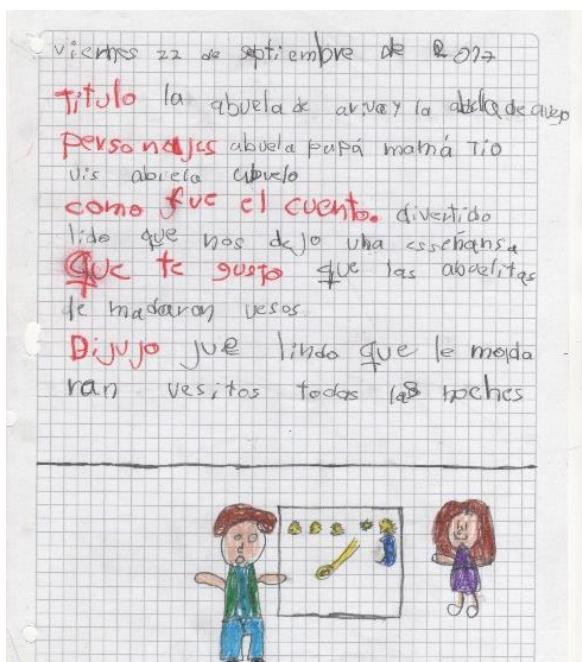 viernes 22 de septiembre de 2017
Titulo la abuela de arriva y la abuela de avajo
Personajes abuela papá mamá Tio
vis abuela abuelo
como fue el cuento. divertido
lido que nos dejo una esseñansa
Que te gusto que las abuelitas
le madaran vesos
Dijujo jue lindo que le mada
ran vesitos todas las noches